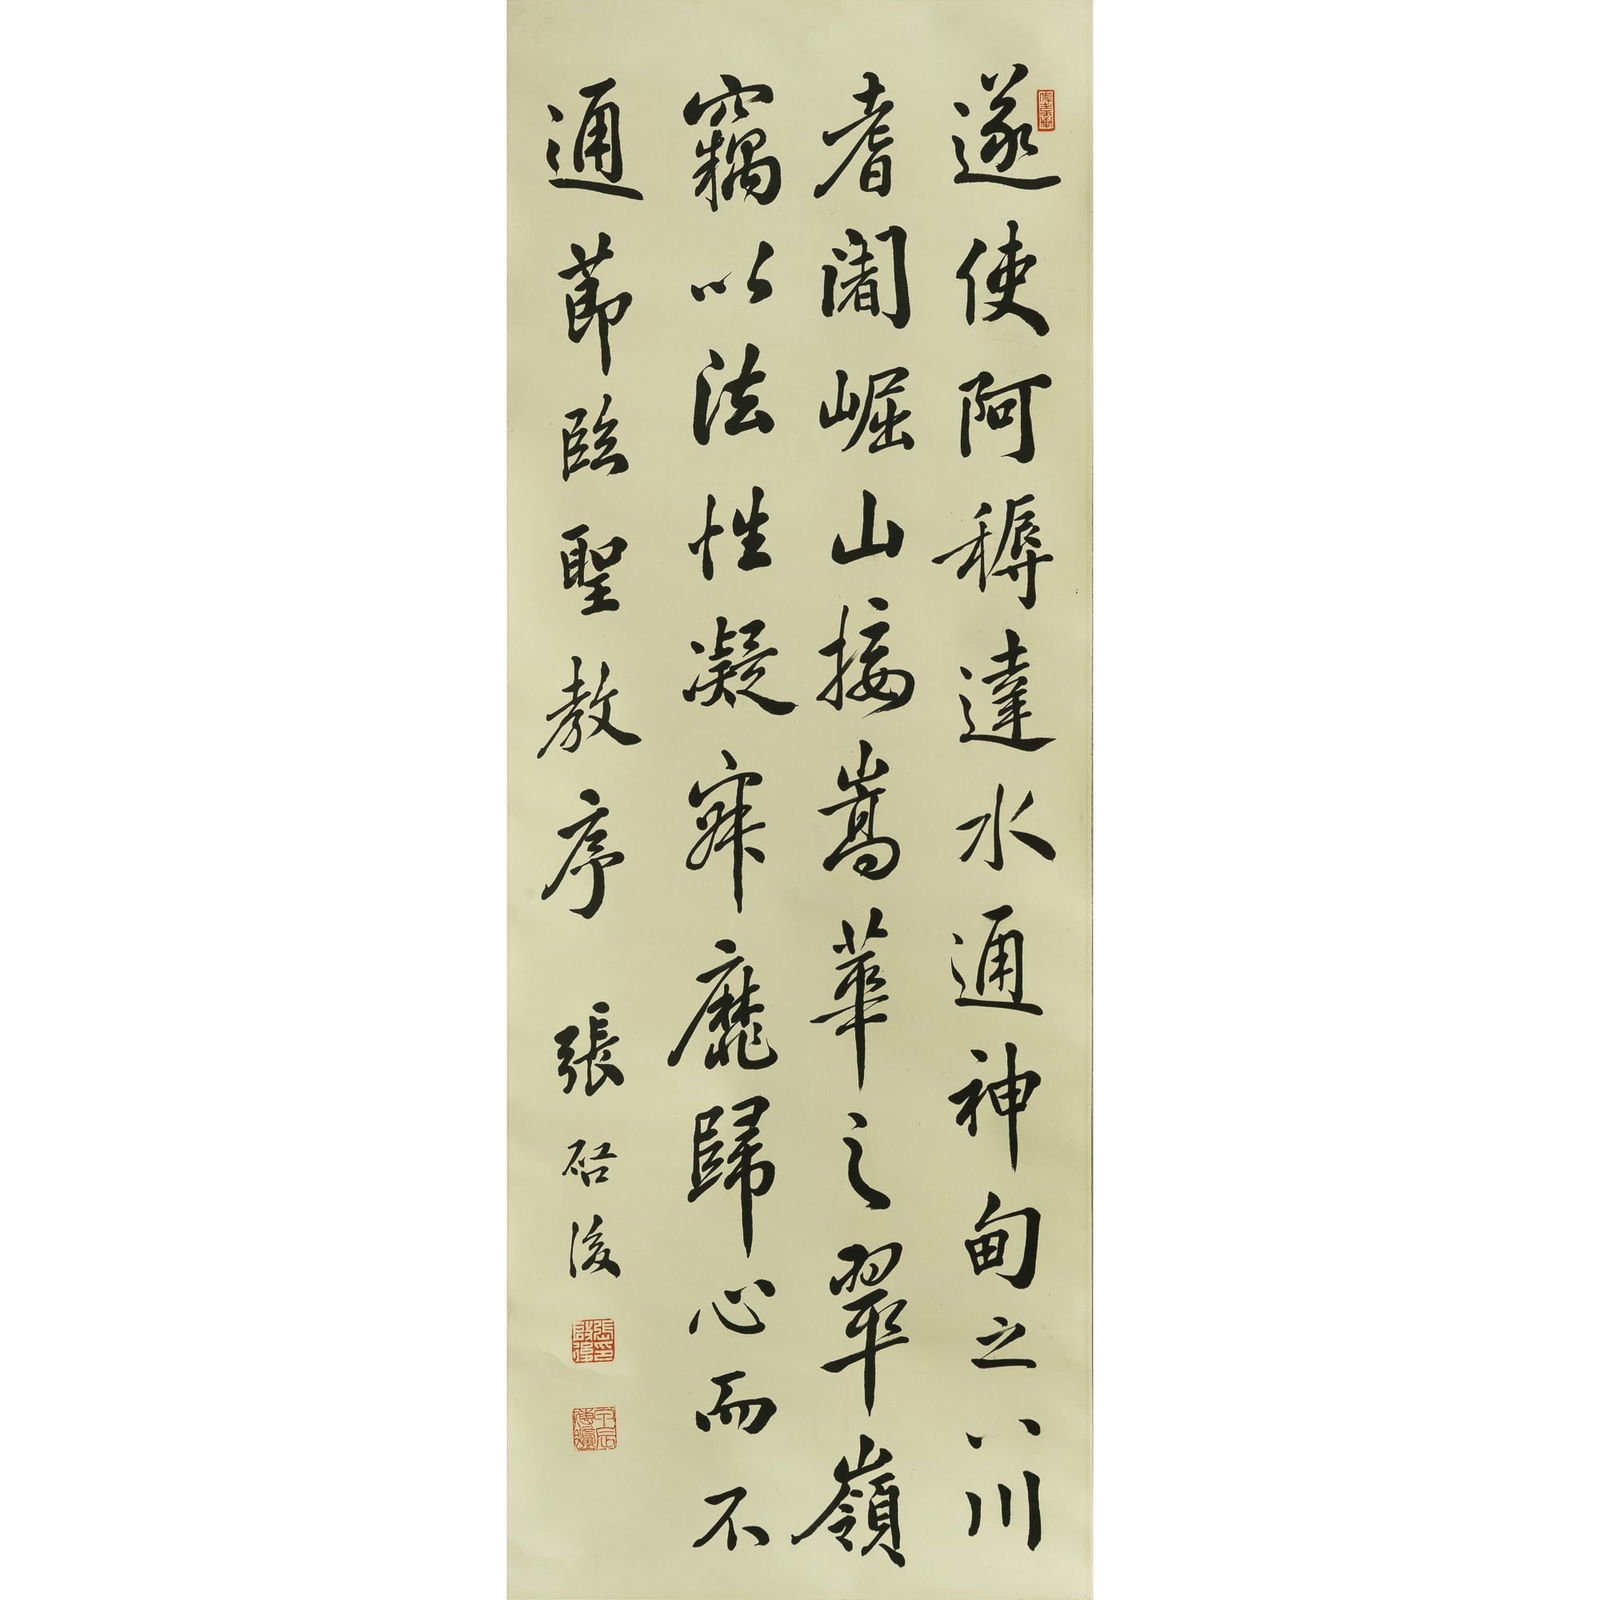 遂使阿耨達水通神甸之八川
耆闍崛山接嵩華之翠嶺
竊以法性凝寂靡歸心而不
通節臨聖教序
張啓後